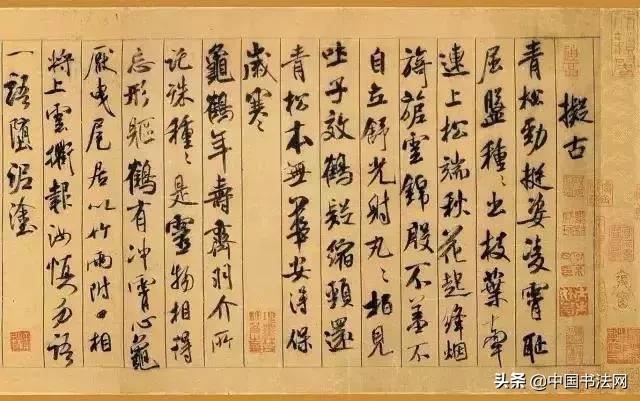 擬古
青松勁挺姿凌霄恥
屈盤種々出枝葉牽
連上松端秋花起絳烟
旖旎雲錦殷不羞不
自立舒光射丸々柏見
吐子效鶴疑縮頸還
青松本無華安得保
歲寒
龜鶴年壽齊羽介所
託殊種々是靈物相得
忘形軀鶴有冲霄心龜
厭曳尾居以竹兩附口相
將上雲衢報汝慎勿語
一語墮泥塗
头条 @中国书法网